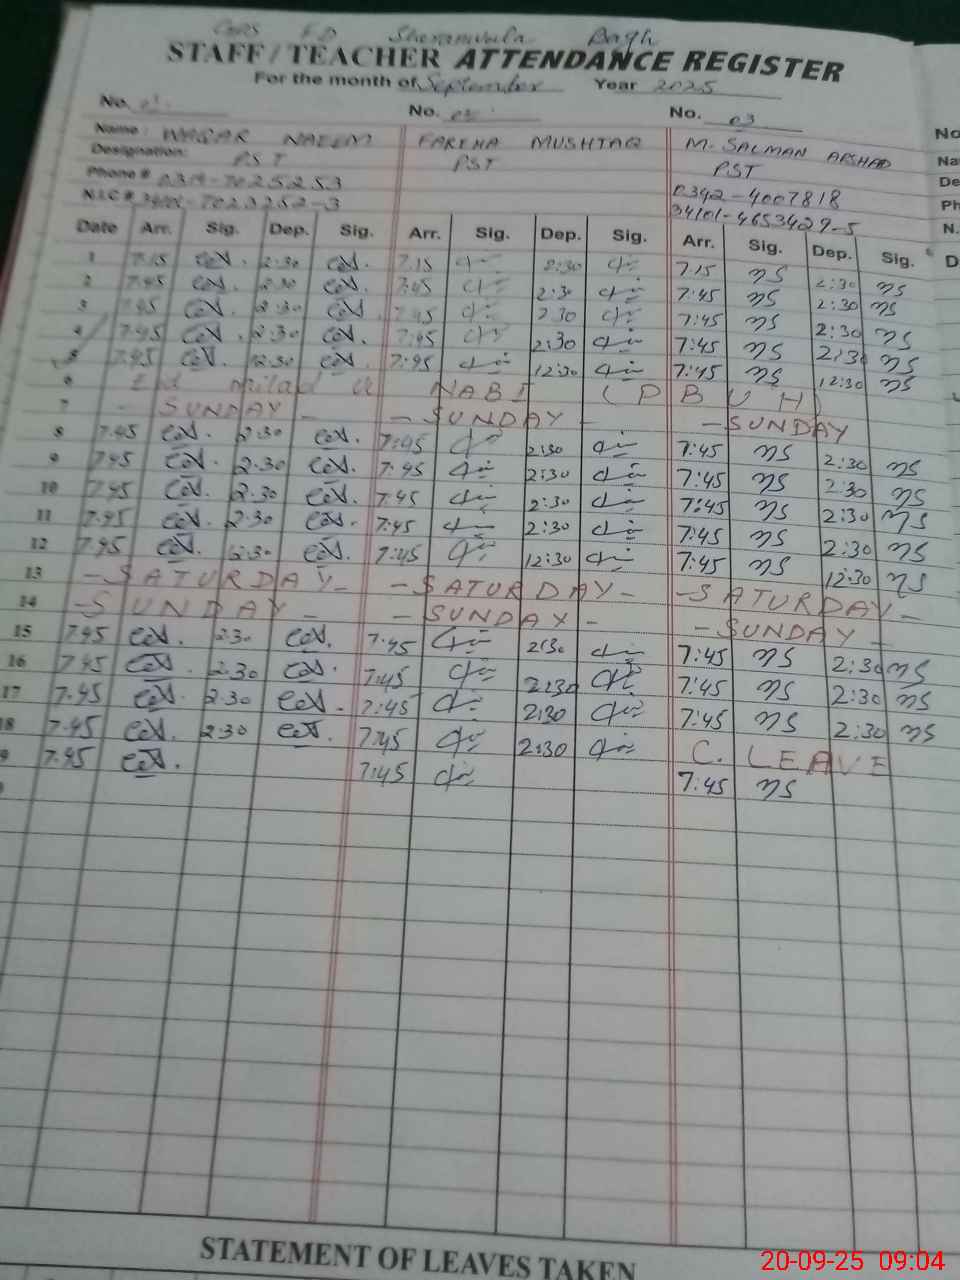 Sheranwala Bagh
STAFF / TEACHER ATTENDANCE REGISTER
For the month of September Year 2025
No. 01. No. 02. No. 03
Name: WAQAR NAEEM FAREHA MUSHTAQ M. SALMAN ARSHAD
Designation: PST PST PST
Phone # 0342-4007818
N.I.C # 34101-4653427-5
Date Arr. Sig. Dep. Sig. Arr. Sig. Dep. Sig. Arr. Sig. Dep. Sig.
1 7:15 2:30 7:15 2:30 7:15 MS 2:30 MS
2 7:45 2:30 7:45 2:30 7:45 MS 2:30 MS
3 7:45 2:30 7:45 2:30 7:45 MS 2:30 MS
4 7:45 2:30 7:45 2:30 7:45 MS 2:30 MS
5 7:45 12:30 7:45 12:30 7:45 MS 12:30 MS
6 Eid milad u NABI (PBUH)
7 - SUNDAY - - SUNDAY - - SUNDAY
8 7:45 2:30 7:45 2:30 7:45 MS 2:30 MS
9 7:45 2:30 7:45 2:30 7:45 MS 2:30 MS
10 7:45 2:30 7:45 2:30 7:45 MS 2:30 MS
11 7:45 2:30 7:45 2:30 7:45 MS 2:30 MS
12 7:45 12:30 7:45 12:30 7:45 MS 12:30 MS
13 - SATURDAY - - SATURDAY - - SATURDAY -
14 - SUNDAY - - SUNDAY - - SUNDAY -
15 7:45 2:30 7:45 2:30 7:45 MS 2:30 MS
16 7:45 2:30 7:45 2:30 7:45 MS 2:30 MS
17 7:45 2:30 7:45 2:30 7:45 MS 2:30 MS
18 7:45 2:30 7:45 2:30 C. LEAVE
9 7:45 7:45 7:45 MS
STATEMENT OF LEAVES TAKEN
20-09-25 09:04